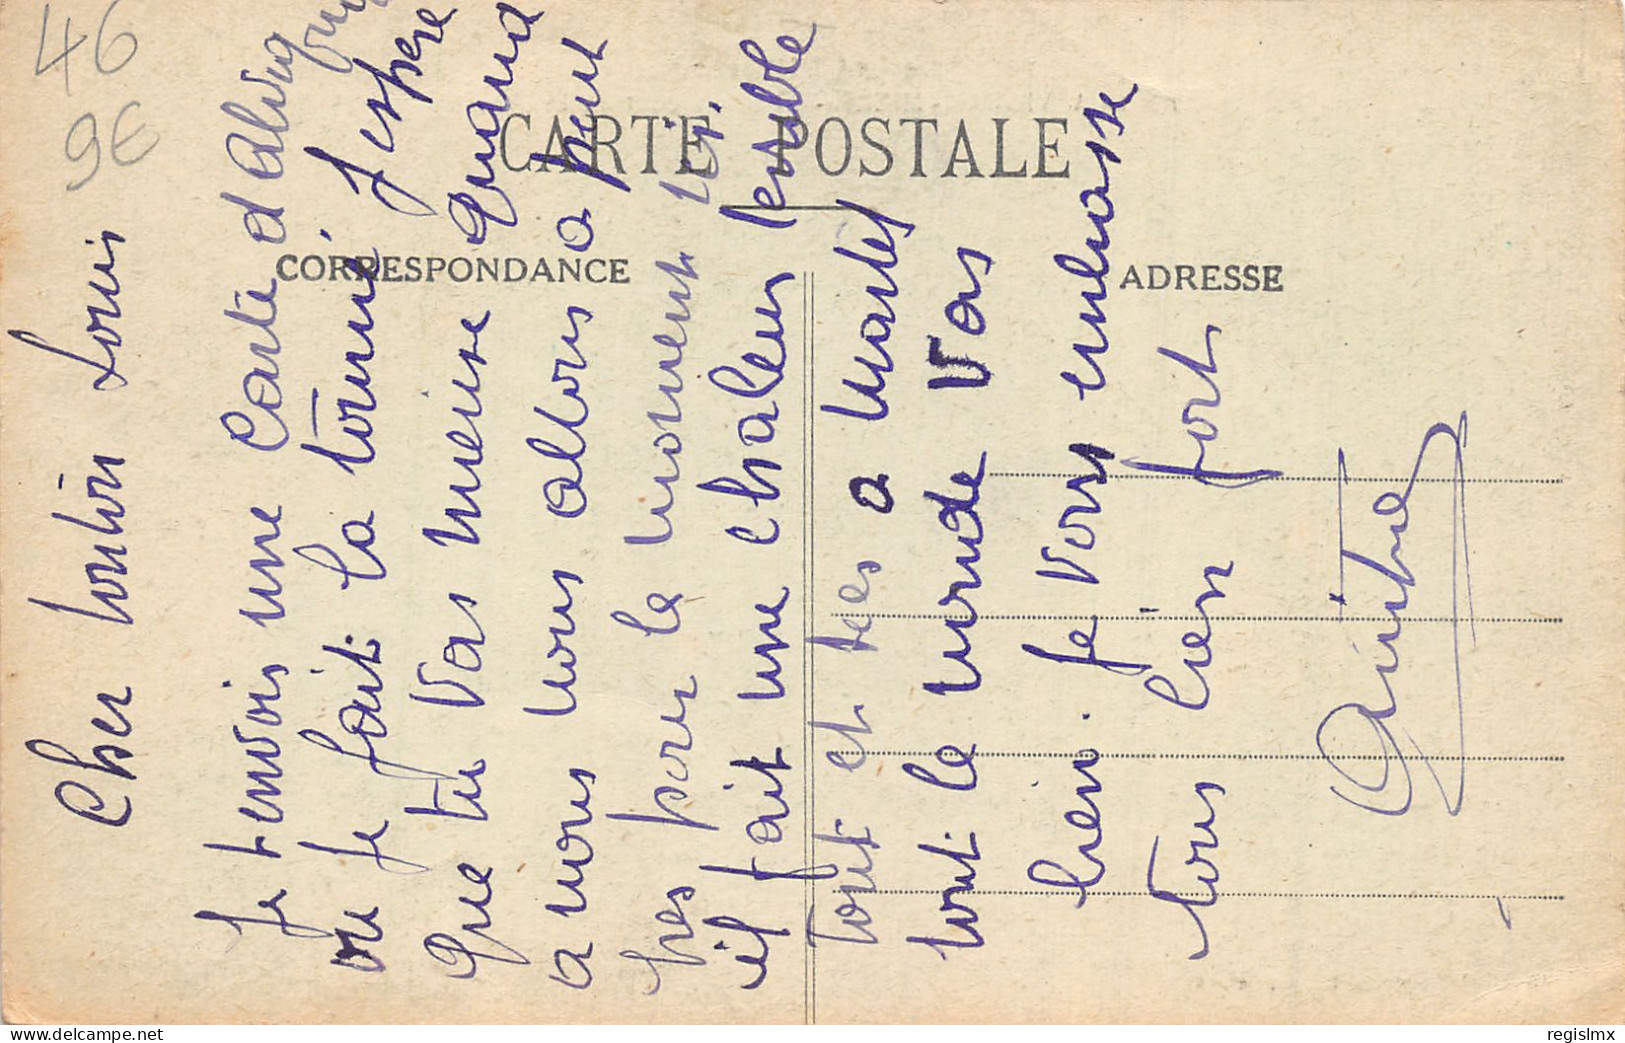 46
9E
CARTE POSTALE
CORRESPONDANCE
ADRESSE
Cher tonton Louis
Je tenvois une Carte d
ou je fait la tourné, Jespere
que tu vas mieux quand
a nous nous allons a peut
pres pour le moment ici.
il fait une chaleur terrible
Tout et tees a Nantes
tout le monde Vas
bien. Je vous embrasse
tous bien fort
regislmx